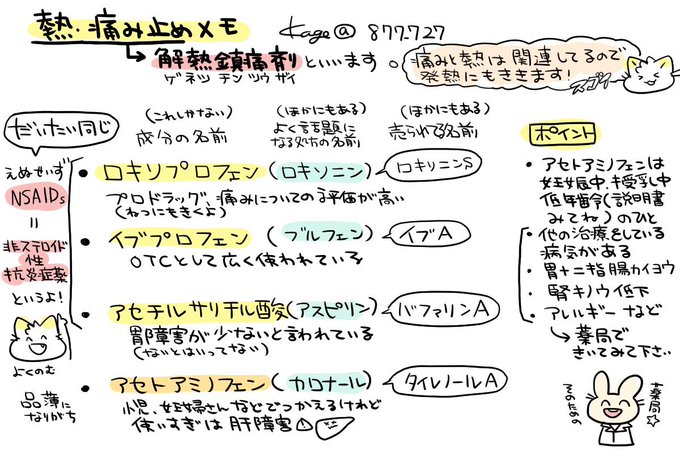 熱・痛み止めメモ
Kage@877727
→解熱鎮痛剤といいます。
ゲネツチンツウザイ
痛みと熱は関連してるので
発熱にもききます!
スゴイ
だいたい同じ
(これしかない)
成分の名前
(ほかにもある)
よく話題に
なる処方の名前
(ほかにもある)
売られてる名前
えぬせいず
NSAIDs
=
非ステロイド
性
抗炎症薬
というよ!
よくのむ
品薄に
なりがち
・ロキソプロフェン(ロキソニン) ロキソニンS
プロドラッグ、痛みについての評価が高い
(ねつにもきくよ)
・イブプロフェン(ブルフェン) イブA
OTCとして広く使われている
・アセチルサリチル酸(アスピリン) バファリンA
胃障害が少ないと言われている
(ないとはいってない)
・アセトアミノフェン(カロナール) タイレノールA
小児、妊婦さんなどでつかえるけれど
使いすぎは肝障害⚠
ポイント
・アセトアミノフェンは
妊娠中、授乳中
低年齢(説明書
みてね)のひと
・他の治療をしている
病気がある
・胃十二指腸カイヨウ
・腎キノウ低下
・アレルギーなど
→薬局で
きいてみて下さい
薬局☆
そのための